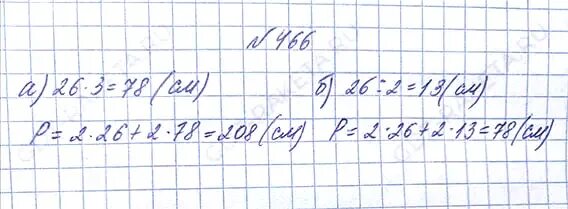 №466
а) 26·3=78 (см)
P=2·26+2·78=208(см)
б) 26÷2=13(см)
P=2·26+2·13=78(см)